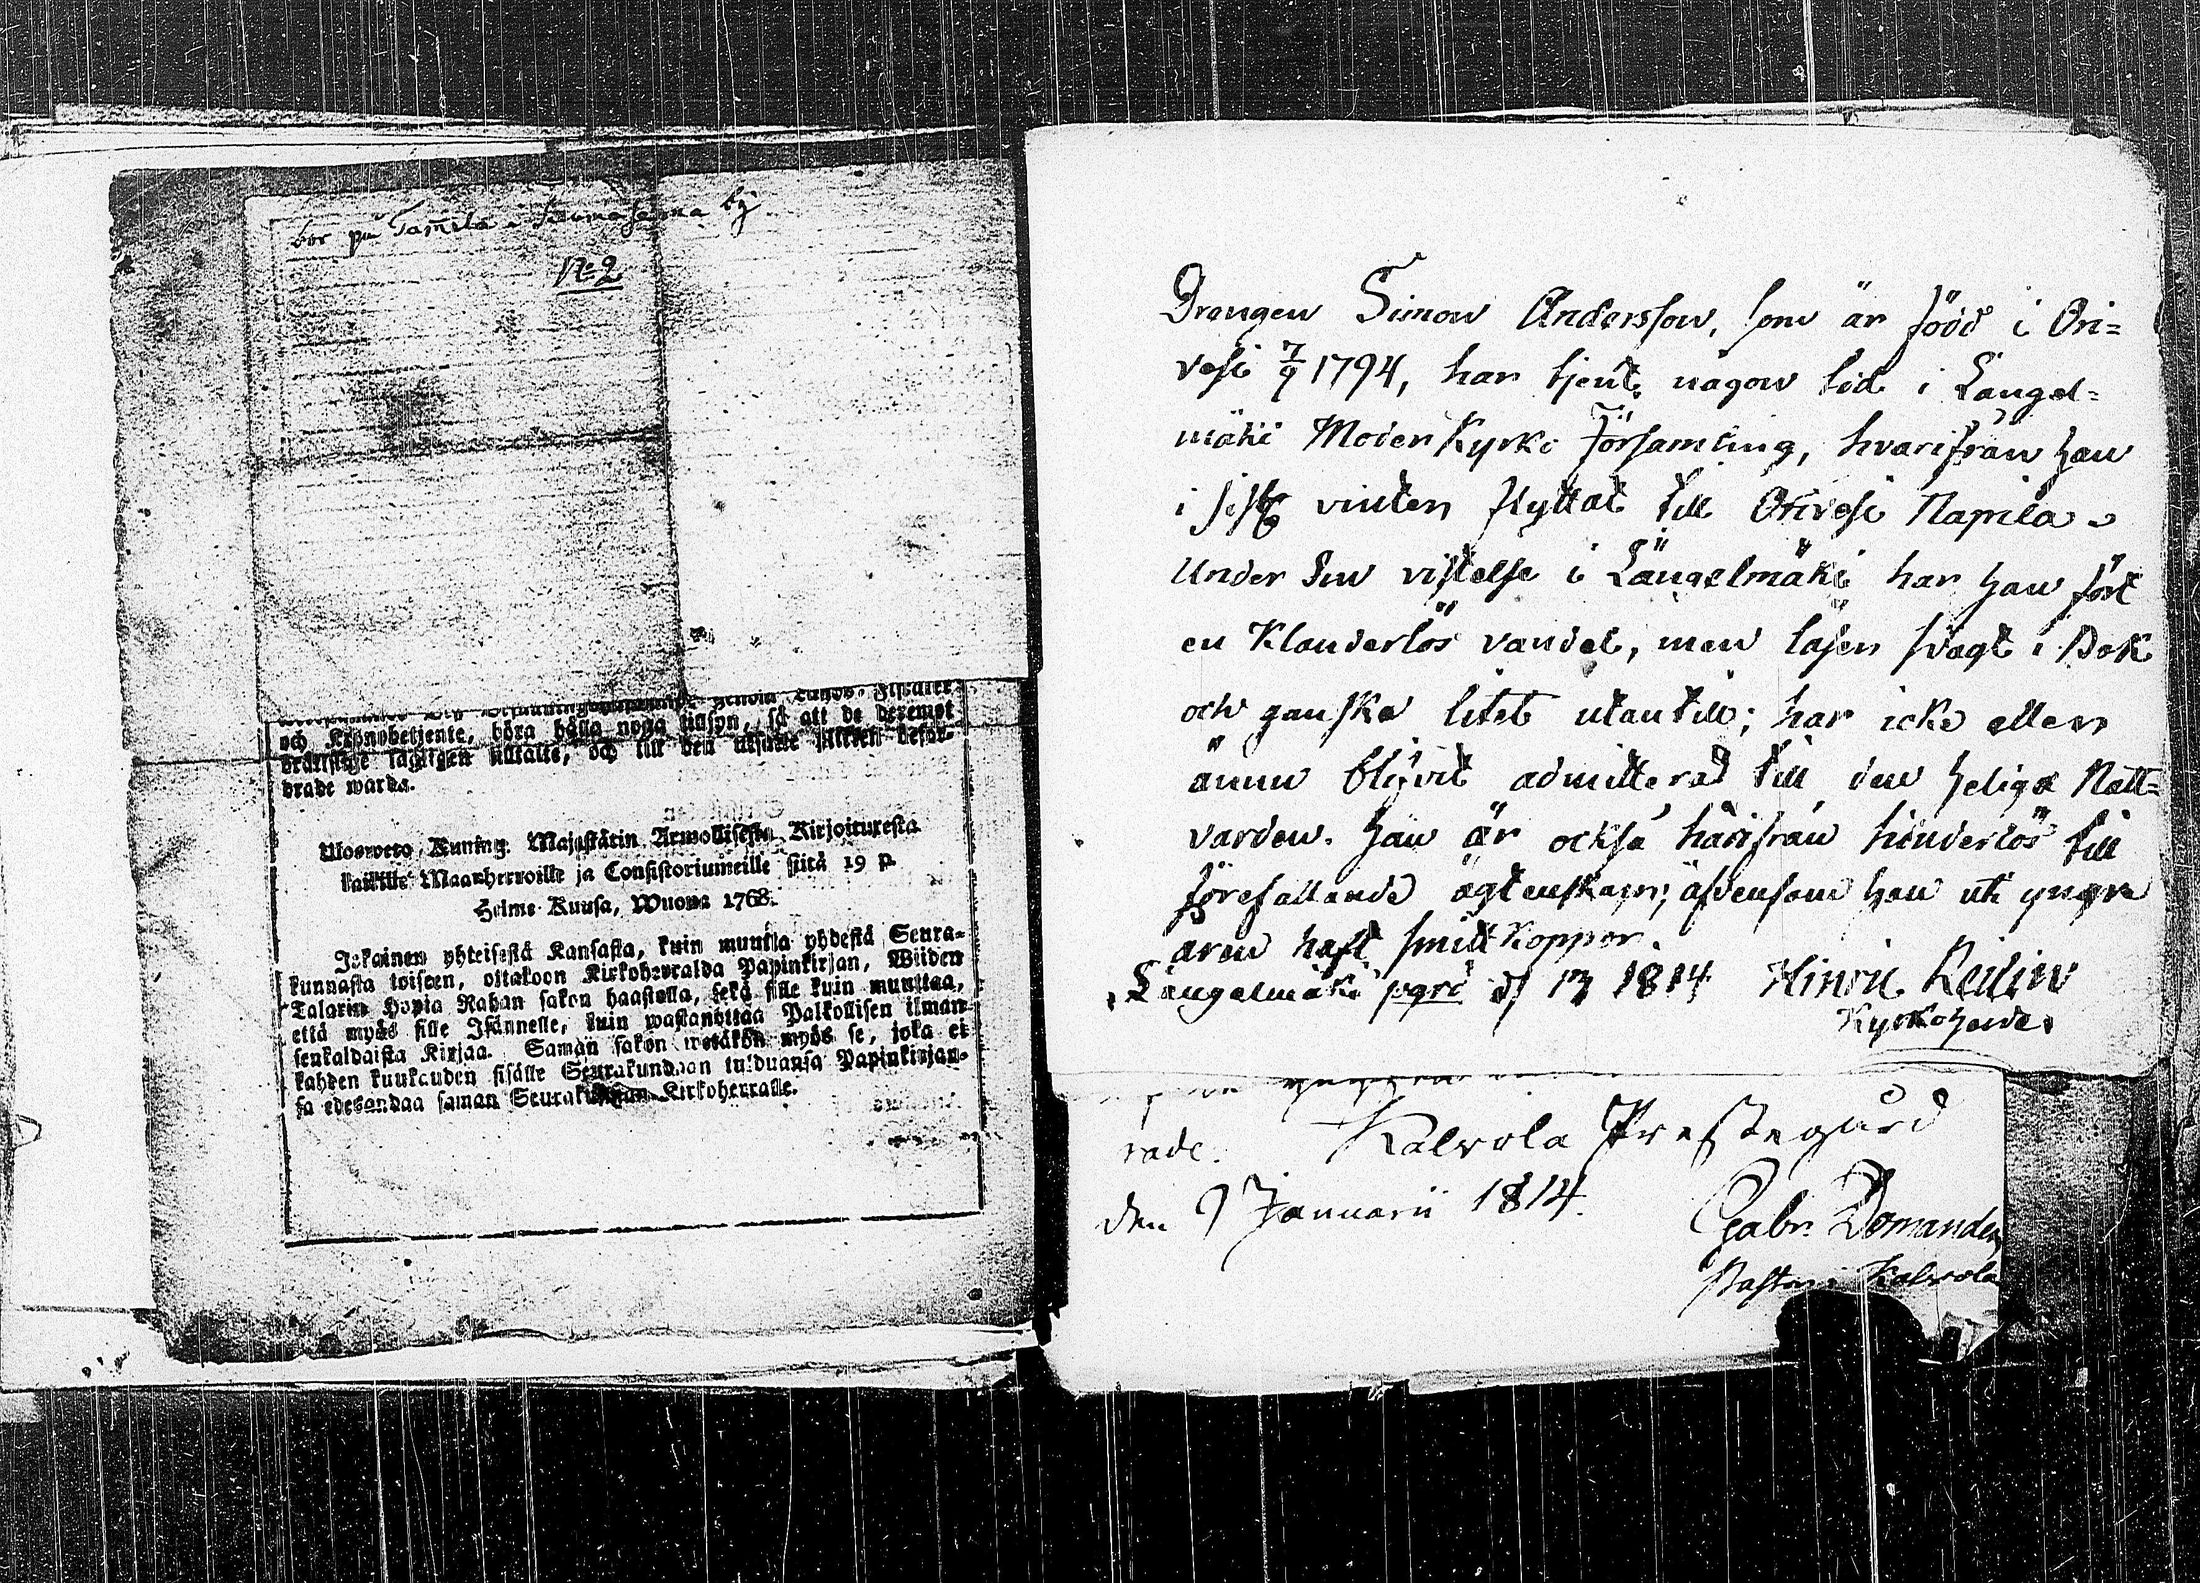 bor på Tam̃ela by
No 2
och Kronobetjente, böra hålla noga tillsyn, så att de deremot
brätslige lagligen tilltalte, och till den utsatte befor-
drade warda.
Uloswero Kuning. Majestätin Armollisesta Kirjoituxesta
kaikille Maanherroille ja Consistoriumeille siitä 19 p.
Helme-Kuusa, Wuona 1768.
Jokainen yhteisestä Kansasta, kuin muutta yhdestä Seura-
kunnasta toiseen, ottakoon Kirkoherralda Papinkirjan, Wiiden
Talarin Hopia Rahan sakon haastolla, sekä sille kuin muuttaa,
että myös sille Isännelle, kuin wastanottaa Palkollisen ilman
senkaldaista Kirjaa. Saman sakon wetäkön myös se, joka ei
kahden kuukauden sisälle Seurakundaan tulduansa Papinkirjan-
sa edesandaa saman Seurakunnan Kirkoherralle.
Drengen Simon Andersson, som är född i Ori-
vesi 7/9 1794, har tjent någon tid i Längel-
mäki Moder Kyrko Församling, hvarifrån han
i sistl. vinter flyttat till Orivesi Napila.
Under sin vistelse i Längelmäki har han fört
en Klanderlös vandel, men läser svagt i Bok
och ganska litet utantill; har icke eller
ännu blifvit admitterad till den heliga Natt-
varden. Han är också härifrån hinderlös till
förefallande ägtenskap; äfvensom han uti yngre
åren haft smittkoppor.
Längelmäki pgrd d. 13/1 1814 Hinric Reilin
Kyrkoherde.
rade. Kalvola Prestegård
den 9 Januarii 1814.
Gabr. Domander
Pastor i Kalvola